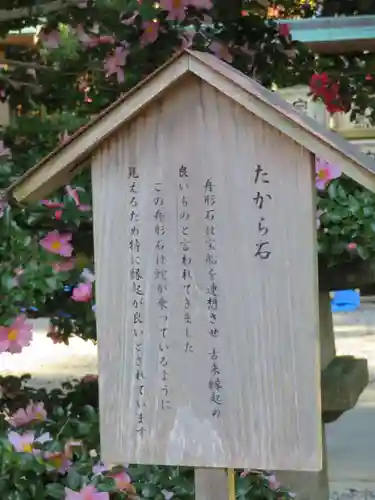 たから石
舟形石は宝船を連想させ 古来縁起の
良いものと言われてきました
この舟形石は蛇が乗っているように
見えるため特に縁起が良いとされています